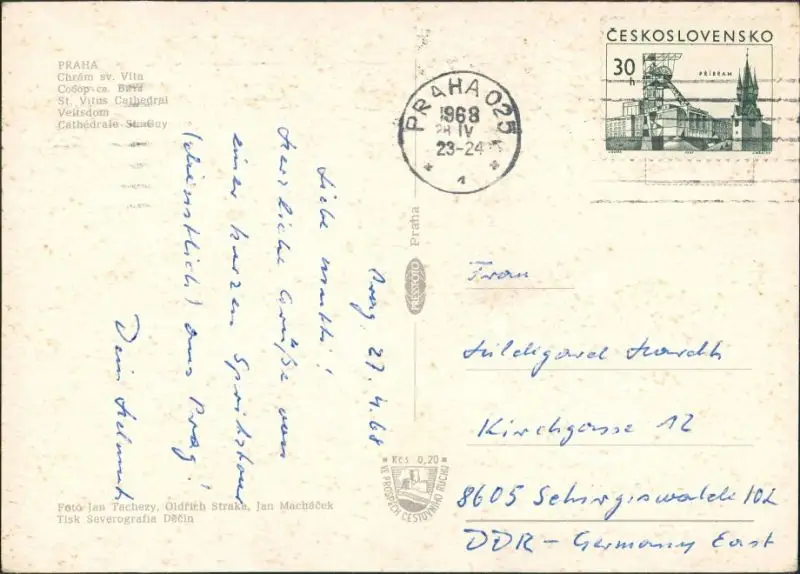 PRAHA
Chrám sv. Víta
St. Vitus Cathedral
Veitsdom
Cathédrale St. Guy
Prag, 27.4.68
Liebe Mutti!
Herzliche Grüße von
einer kurzen Spritztour
(dienstlich) aus Prag!
Dein Helmut
Foto Jan Tachezy, Oldřich Straka, Jan Macháček
Tisk Severografia Děčín
PRESSFOTO Praha
Kčs 0,20
VE PROSPĚCH CESTOVNÍHO RUCHU
PRAHA 025
1968
28 IV
23-24
1
ČESKOSLOVENSKO
30 h
PŘÍBRAM
Frau
Hildigard Hardt
Kirchgasse 12
8605 Schirgiswalde / OL
DDR - Germany East